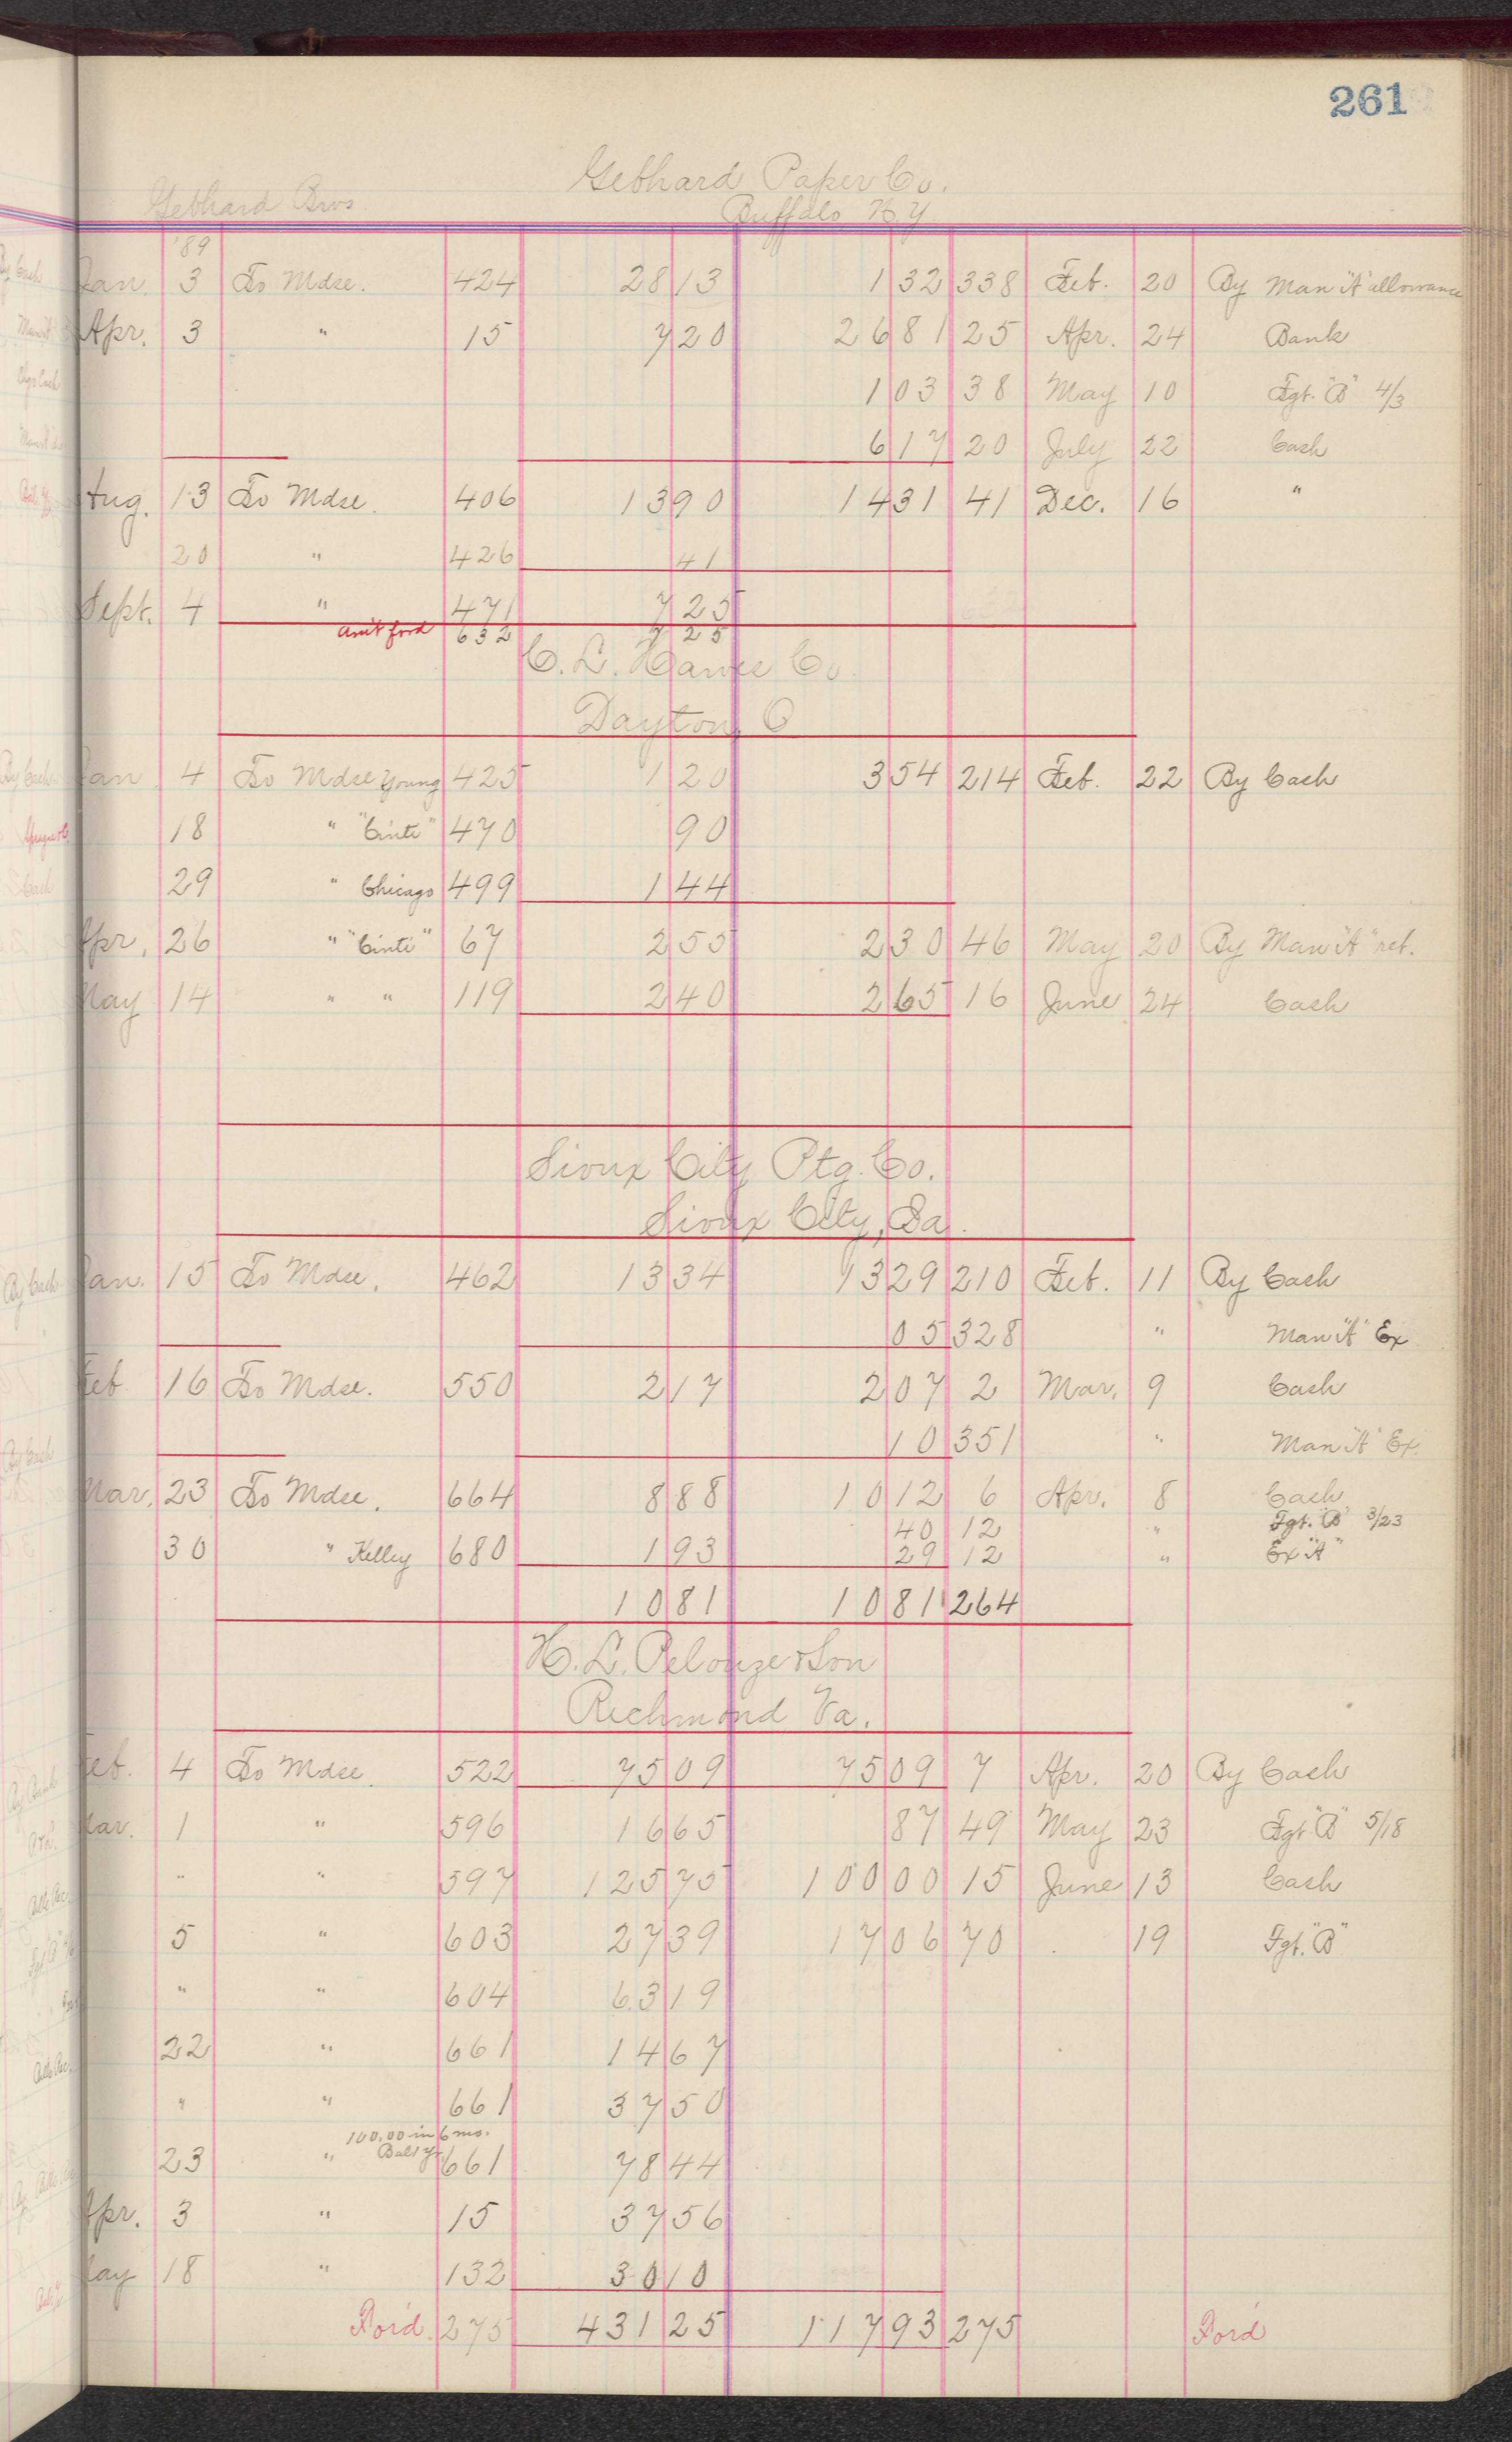 261
Gebhard Paper Co.
Gebhard Bros.
Buffalo N.Y.
'89
Jan. 3 To Mdse. 424 28 13 1 32 338 Feb. 20 By Man "A" allowance
Apr. 3 " 15 7 20 26 81 25 Apr. 24 Bank
1 03 38 May 10 Fgt. "B" 4/3
6 17 20 July 22 Cash
Aug. 13 To Mdse. 406 13 90 14 31 41 Dec. 16 "
20 " 426 41
Sept. 4 " 471 7 25
Am't ford 632 7 25
C. L. Hawes Co.
Dayton, O
Jan 4 To Mdse Young 425 1 20 3 54 214 Feb. 22 By Cash
18 " "Cinti" 470 90
29 " Chicago 499 1 44
Apr. 26 " "Cinti" 67 2 55 2 30 46 May 20 By Man "A" ret.
May 14 " " 119 2 40 2 65 16 June 24 Cash
Sioux City Ptg. Co.
Sioux City, Ia.
Jan. 15 To Mdse. 462 13 34 13 29 210 Feb. 11 By Cash
05 328 " Man "A" Ex
Feb 16 To Mdse. 550 2 17 2 07 2 Mar. 9 Cash
10 351 " Man "A" Ex.
Mar. 23 To Mdse. 664 8 88 10 12 6 Apr. 8 Cash
40 12 " Fgt. "B" 3/23
30 " Kelley 680 1 93 29 12 " Ex "A"
10 81 10 81 264
H. L. Pelouze & Son
Richmond Va.
Feb. 4 To Mdse. 522 75 09 75 09 7 Apr. 20 By Cash
Mar. 1 " 596 16 65 87 49 May 23 Fgt "B" 5/18
" " 597 125 75 100 00 15 June 13 Cash
5 " 603 27 39 17 06 70 19 Fgt. "B"
" " 604 63 19
22 " 661 14 67
" " 661 37 50
100.00 in 6 mo.
23 " 661 78 44
Apr. 3 " 15 37 56
May 18 " 132 30 10
Ford. 275 431 25 117 93 275 Ford